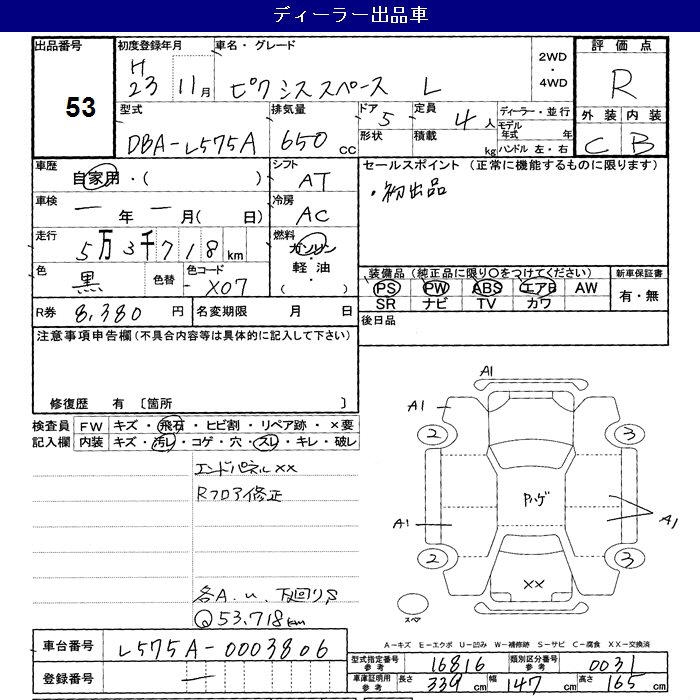 ディーラー出品車
出品番号 53
初度登録年月 H23 11月
車名・グレード ピクシススペース L
2WD・4WD
評価点 R
外装 C 内装 B
型式 DBA-L575A
排気量 650 cc
ドア 5 定員 4人
形状 積載 kg
ディーラー・並行
モデル年式 年
ハンドル 左・右
車歴 自家用・( )
シフト AT
車検 ー年ー月( 日)
冷房 AC
走行 5万3千718km
燃料 ガソリン・軽油 ( )
色 黒 色替 色コード - X07
R券 8,380 円 名変期限 月 日
セールスポイント (正常に機能するものに限ります)
・初出品
装備品(純正品に限り○をつけてください)
PS PW ABS エアB AW
SR ナビ TV カワ
新車保証書 有・無
後日品
注意事項申告欄(不具合内容等は具体的に記入して下さい)
修復歴 有 〔箇所 〕
検査員記入欄
FW キズ・飛石・ヒビ割・リペア跡・×要
内装 キズ・汚レ・コゲ・穴・スレ・キレ・破レ
エンドパネルXX
Rフロア修正
各A.U. 下回りS
Q 53,718km
A1
A1
2 3
Pハゲ
A1 A1
2 3
XX
スペア
A-キズ E-エクボ U-凹み W-補修跡 S-サビ C-腐食 XX-交換済
車台番号 L575A-0003806
登録番号 ー
型式指定番号 参考 16816 類別区分番号 参考 0031
車庫証明用 参考 長さ 339 cm 幅 147 cm 高さ 165 cm